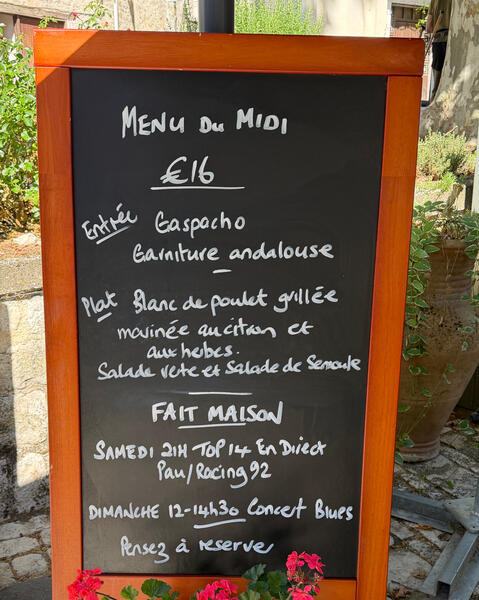 MENU DU MIDI
€16
Entrée Gaspacho
Garniture andalouse
Plat Blanc de poulet grillée
marinée au citron et
aux herbes.
Salade verte et Salade de Semoule
FAIT MAISON
SAMEDI 21H TOP 14 En Direct
Pau/Racing 92
DIMANCHE 12-14h30 Concert Blues
Pensez à reserver